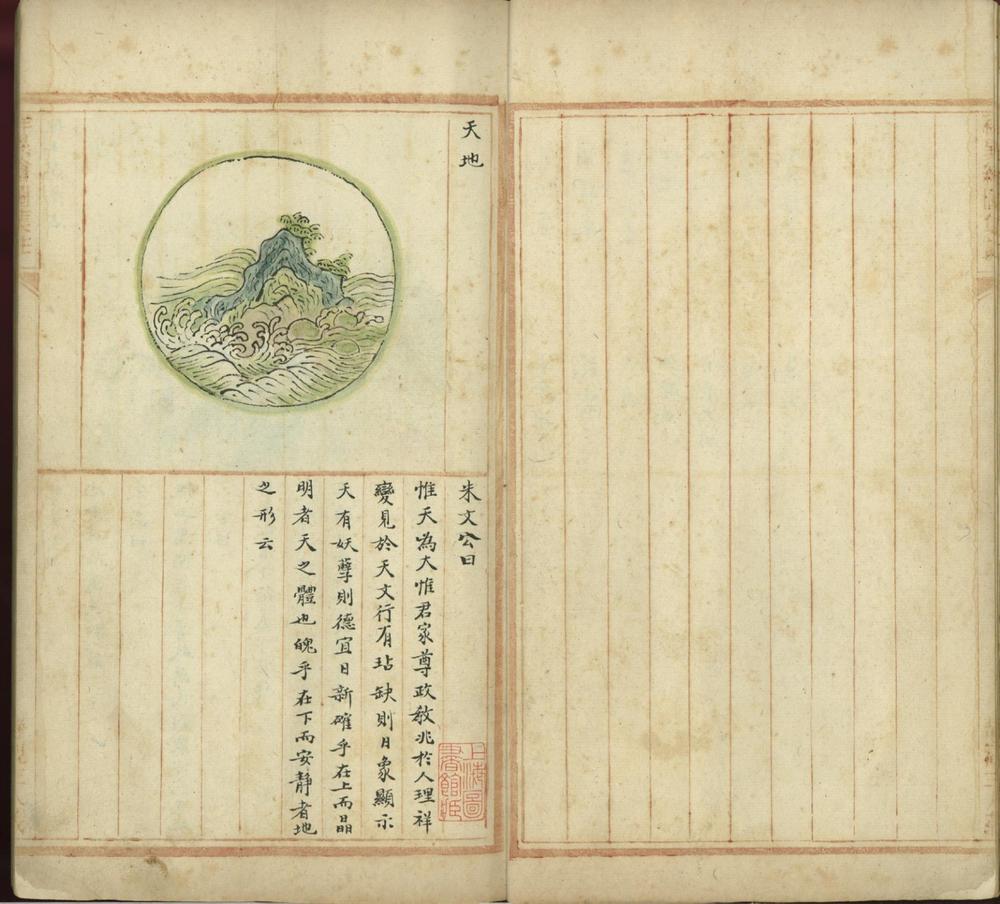 天地
朱文公曰
惟天為大惟君家尊政教兆於人理祥
變見於天文行有玷缺則日象顯示
天有妖孽則德宜日新確乎在上而晶
明者天之體也魄乎在下而安靜者地
之形云
上海圖
書館藏